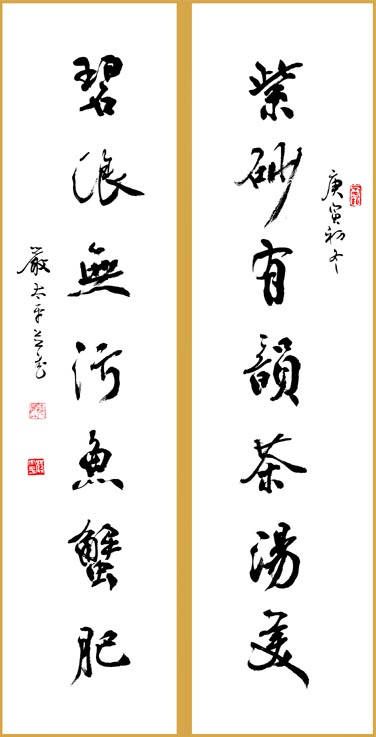 庚寅初冬
紫砂有韻茶湯美
碧浪無污魚蟹肥
嚴太平